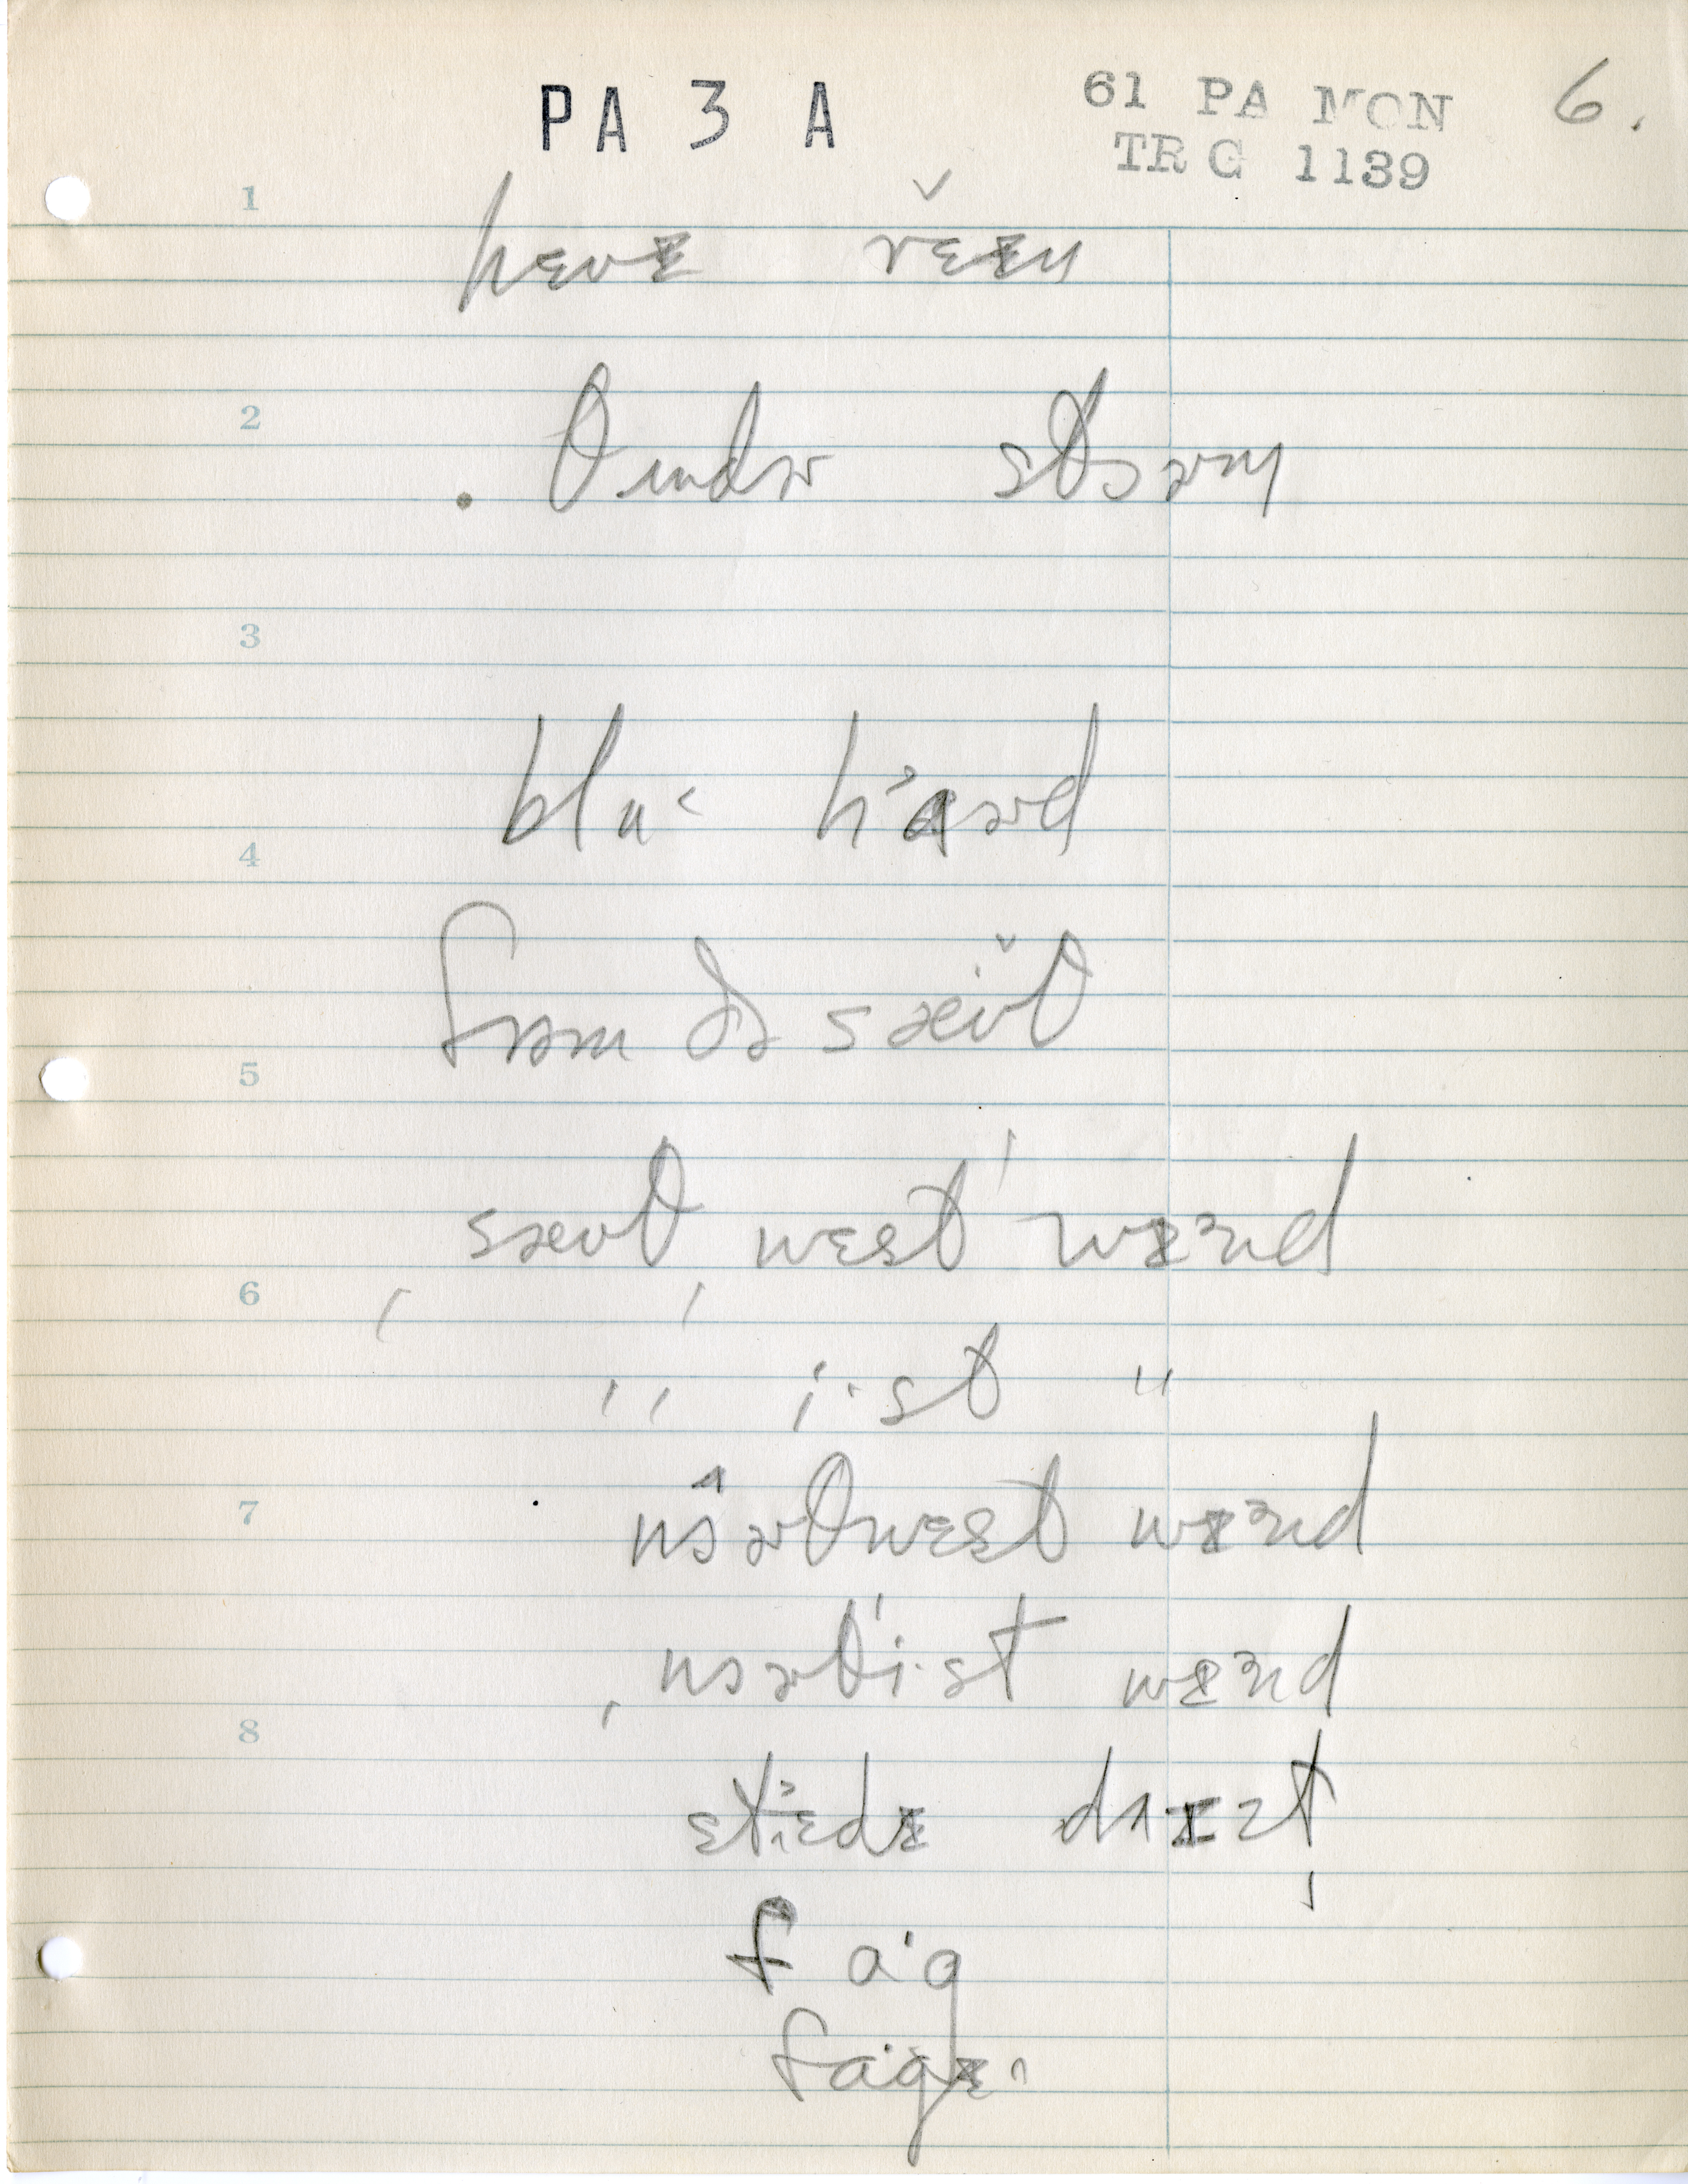 PA 3 A
61 PA MON
TRG 1139
6.
1
hɛvɪ rɛɪn
2
θʌndɚ stɔɚm
3
bluˑ hɑɚd
4
frəm ðə sæʊθ
5
sæʊθ wɛst wɪnd
6
〃 iˑst 〃
7
nɔɚθwɛst wɪnd
nɔɚθiˑst wɪnd
8
stɛdɪ
fɑˑg
fɑˑgɪ